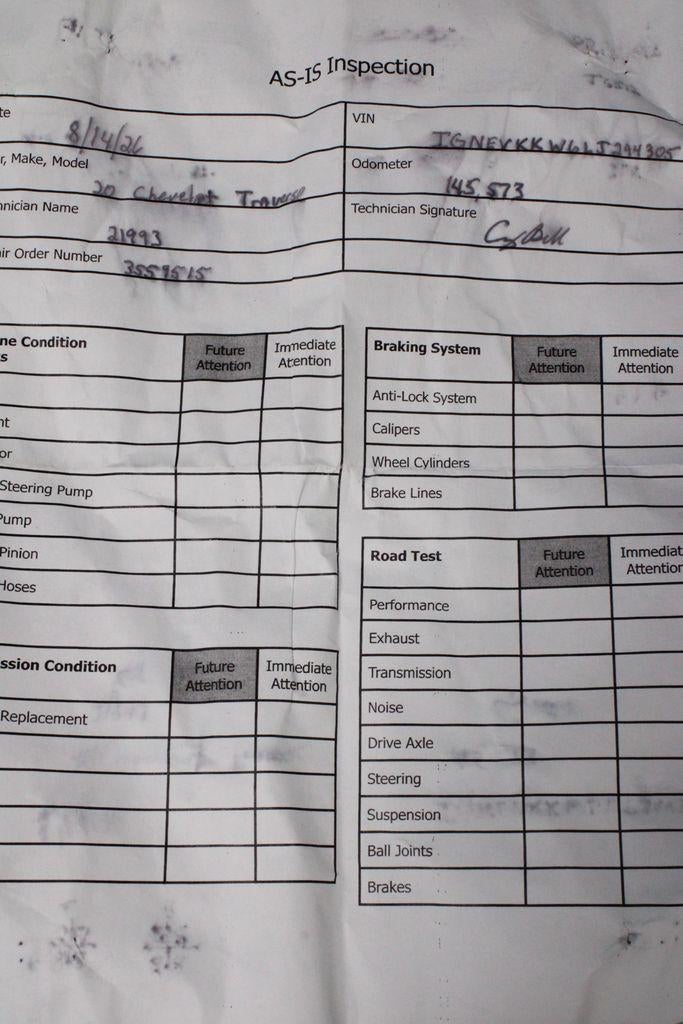 AS-IS Inspection
te
8/14/26
VIN
1GNEVKKW6LJ294305
r, Make, Model
20 Chevelot Traverse
Odometer
145,573
hnician Name
21993
Technician Signature
air Order Number
3559515
ne Condition
s
Future Attention
Immediate Attention
nt
or
Steering Pump
Pump
Pinion
Hoses
Braking System
Future Attention
Immediate Attention
Anti-Lock System
Calipers
Wheel Cylinders
Brake Lines
ssion Condition
Future Attention
Immediate Attention
Replacement
Road Test
Future Attention
Immediat Attention
Performance
Exhaust
Transmission
Noise
Drive Axle
Steering
Suspension
Ball Joints
Brakes